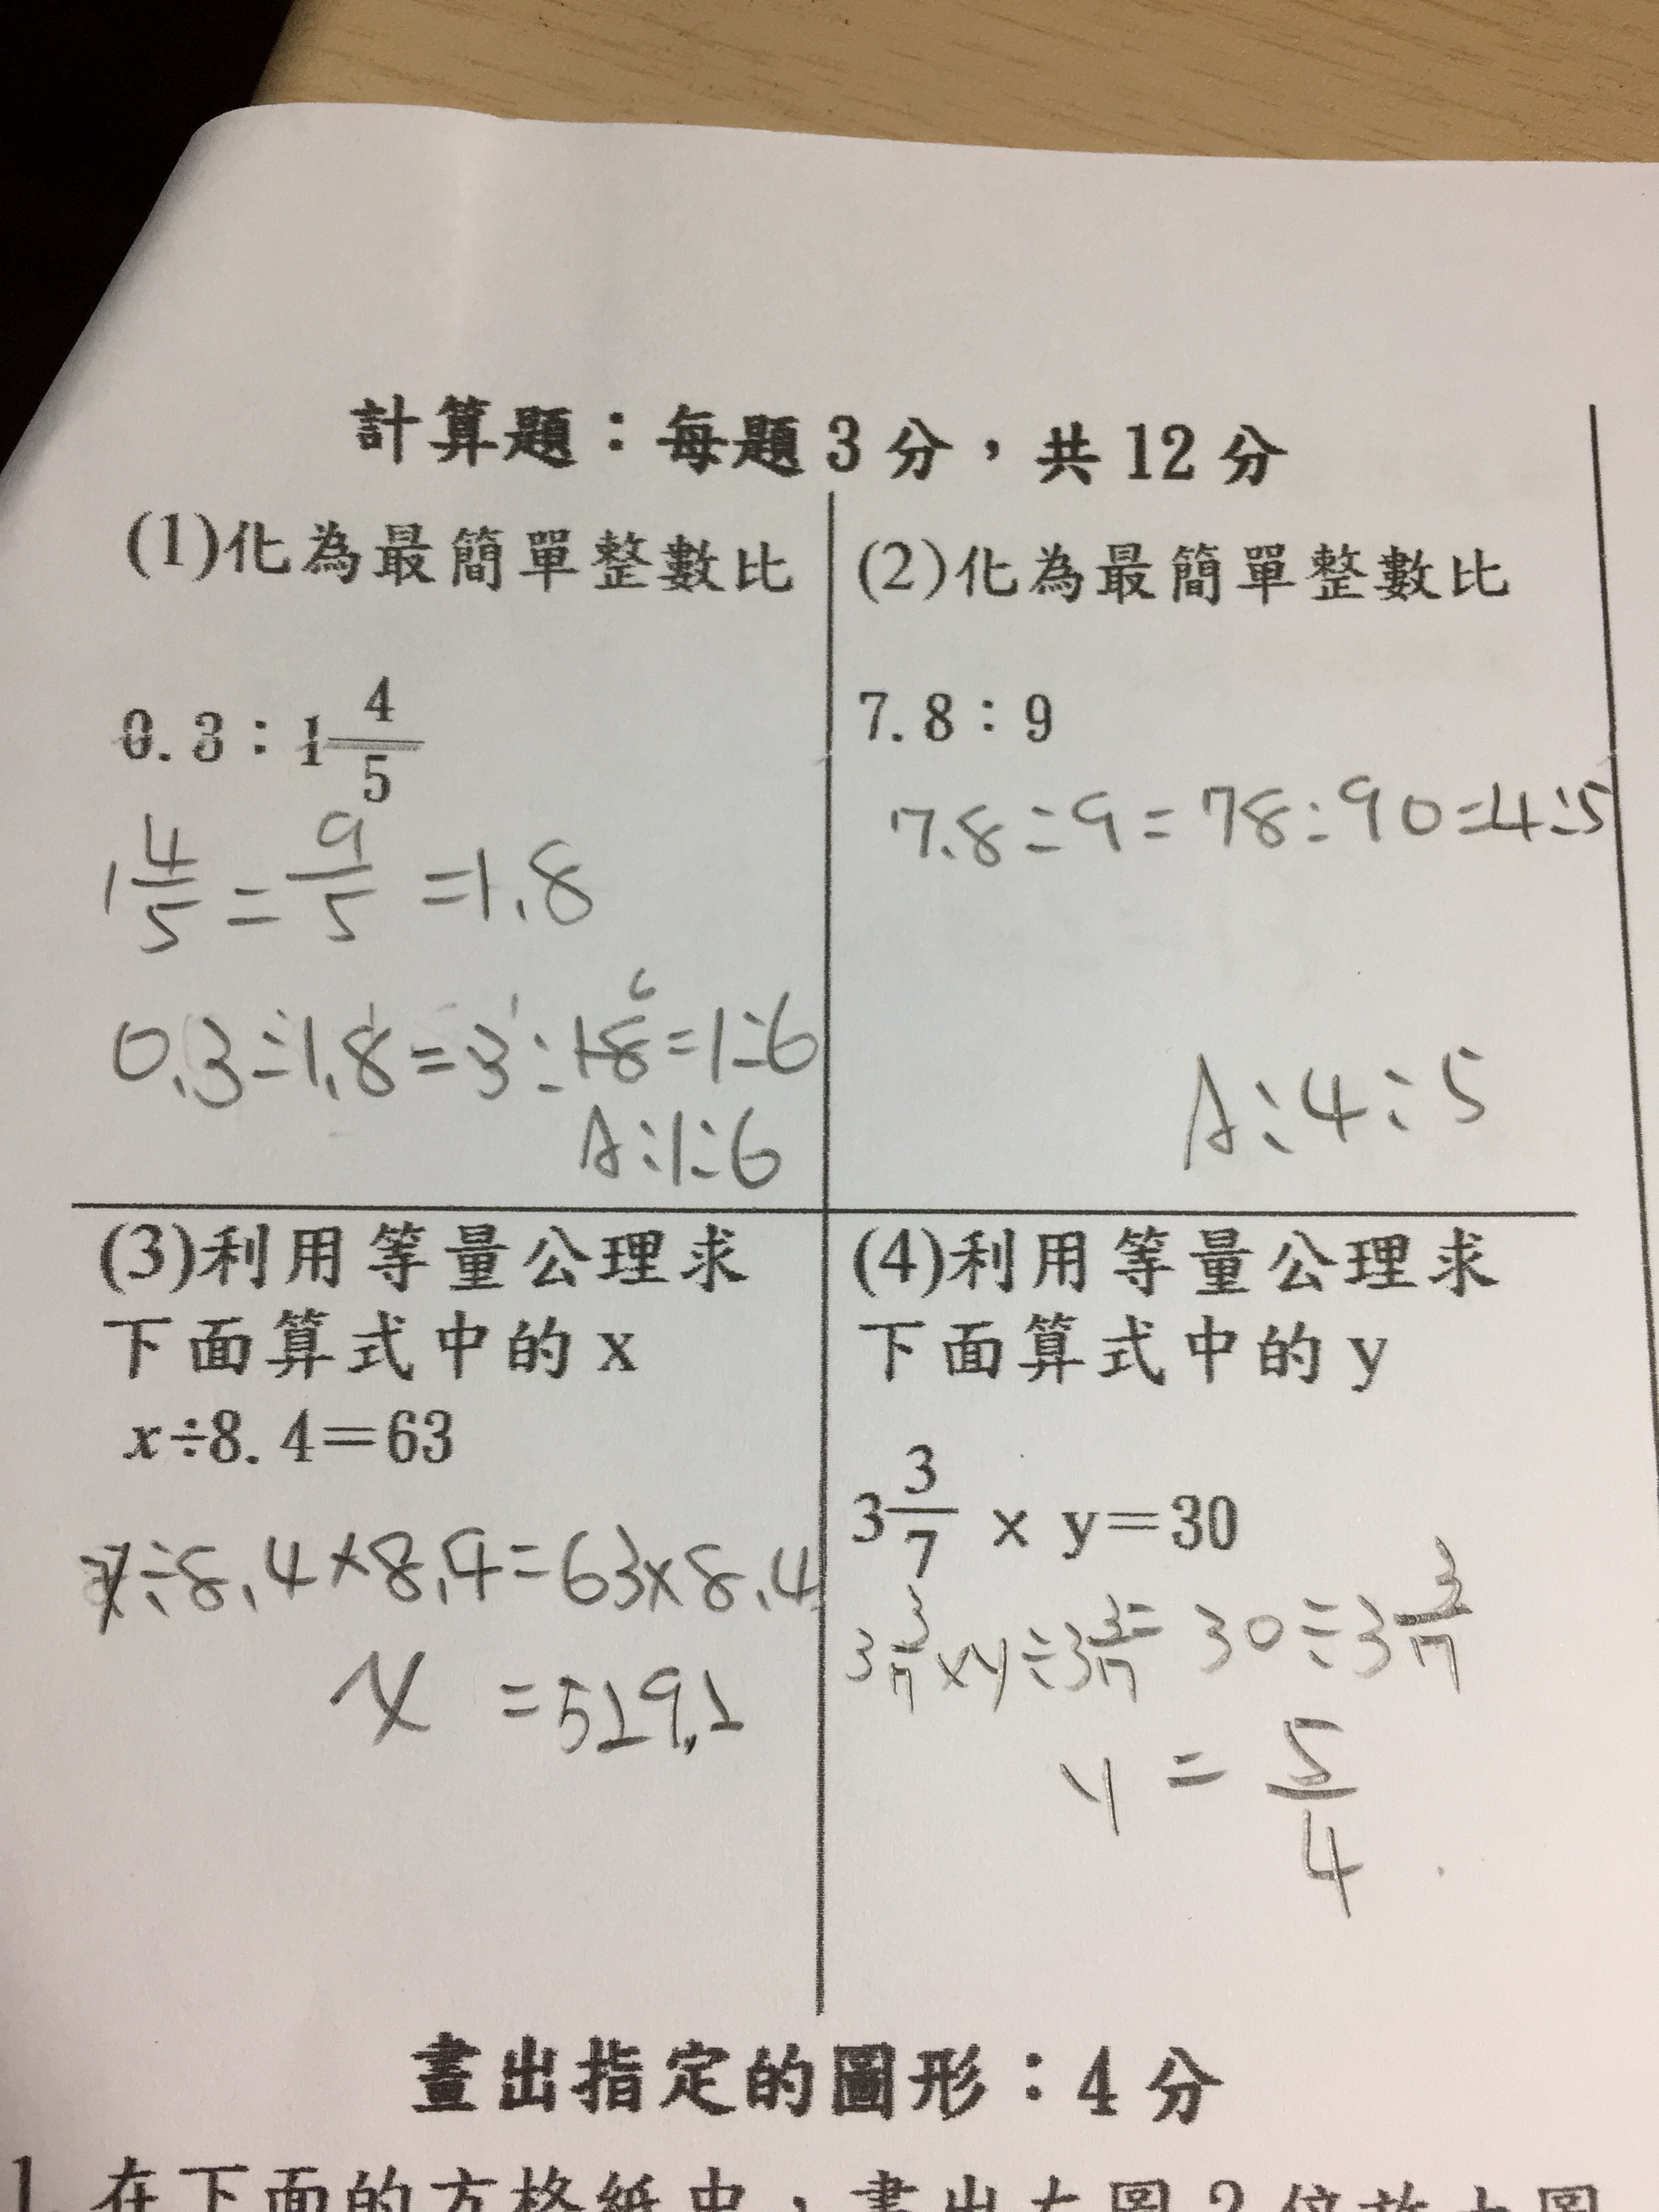 計算題：每題3分，共12分
(1)化為最簡單整數比
0.3：1 4/5
1 4/5 = 9/5 =1.8
0.3:1.8=3:18=1:6
1 6
A:1:6
(2)化為最簡單整數比
7.8：9
7.8:9=78:90=4:5
A:4:5
(3)利用等量公理求
下面算式中的 x
x÷8.4=63
x÷8.4×8.4=63×8.4
x =519.1
(4)利用等量公理求
下面算式中的 y
3 3/7 × y=30
3 3/7 ×y÷3 3/7 = 30÷3 3/7
y = 5/4
畫出指定的圖形：4分
1.在下面的方格紙中，畫出左圖2倍放大圖